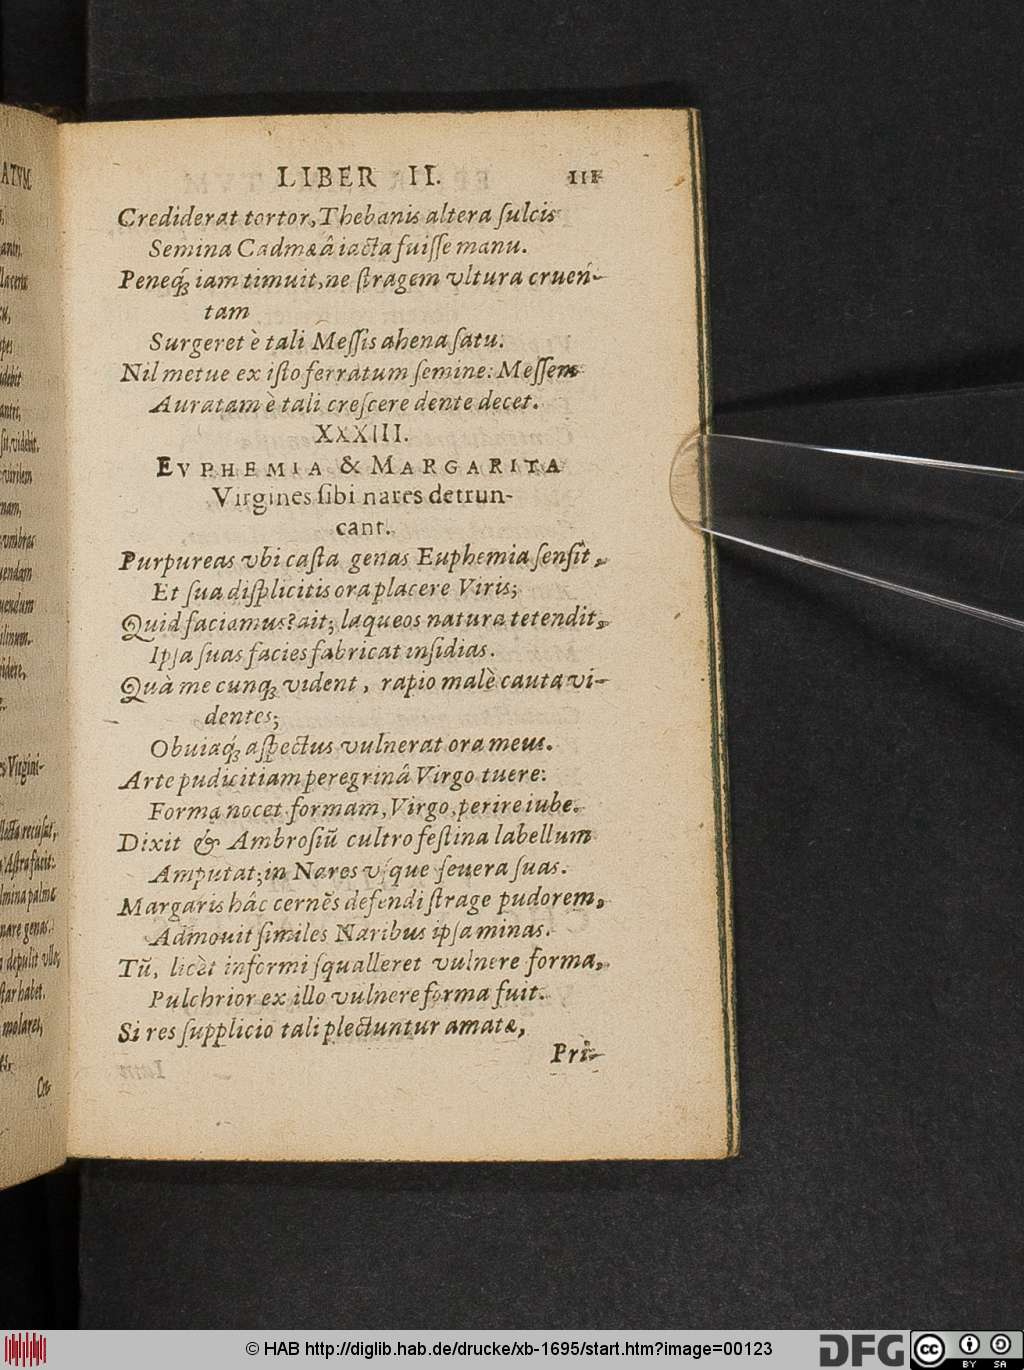 LIBER II. 111
Crediderat tortor, Thebanis altera ſulcis
Semina Cadmæâ iacta fuiſſe manu.
Peneq́; iam timuit, ne ſtragem vltura cruen-
tam
Surgeret è tali Meſſis ahena ſatu.
Nil metue ex iſto ferratum ſemine: Meſſem
Auratam è tali creſcere dente decet.
XXXIII.
EVPHEMIA & MARGARITA
Virgines ſibi nares detrun-
cant.
Purpureas vbi caſta genas Euphemia ſenſit,
Et ſua diſplicitis ora placere Viris;
Quid faciamus? ait; laqueos natura tetendit,
Ipſa ſuas facies fabricat inſidias.
Quà me cunq; vident, rapio malè cauta vi-
dentes;
Obuiaq́; aſpectus vulnerat ora meus.
Arte pudicitiam peregrinâ Virgo tuere:
Forma nocet formam, Virgo, perire iube.
Dixit & Ambroſiũ cultro feſtina labellum
Amputat; in Nares vſque ſeuera ſuas.
Margaris hâc cernẽs defendi ſtrage pudorem,
Admouit ſimiles Naribus ipſa minas.
Tũ, licèt informi ſqualleret vulnere forma,
Pulchrior ex illo vulnere forma fuit.
Si res ſupplicio tali plectuntur amatæ,
Pri-
ATVM
© HAB http://diglib.hab.de/drucke/xb-1695/start.htm?image=00123
DFG
cc BY SA